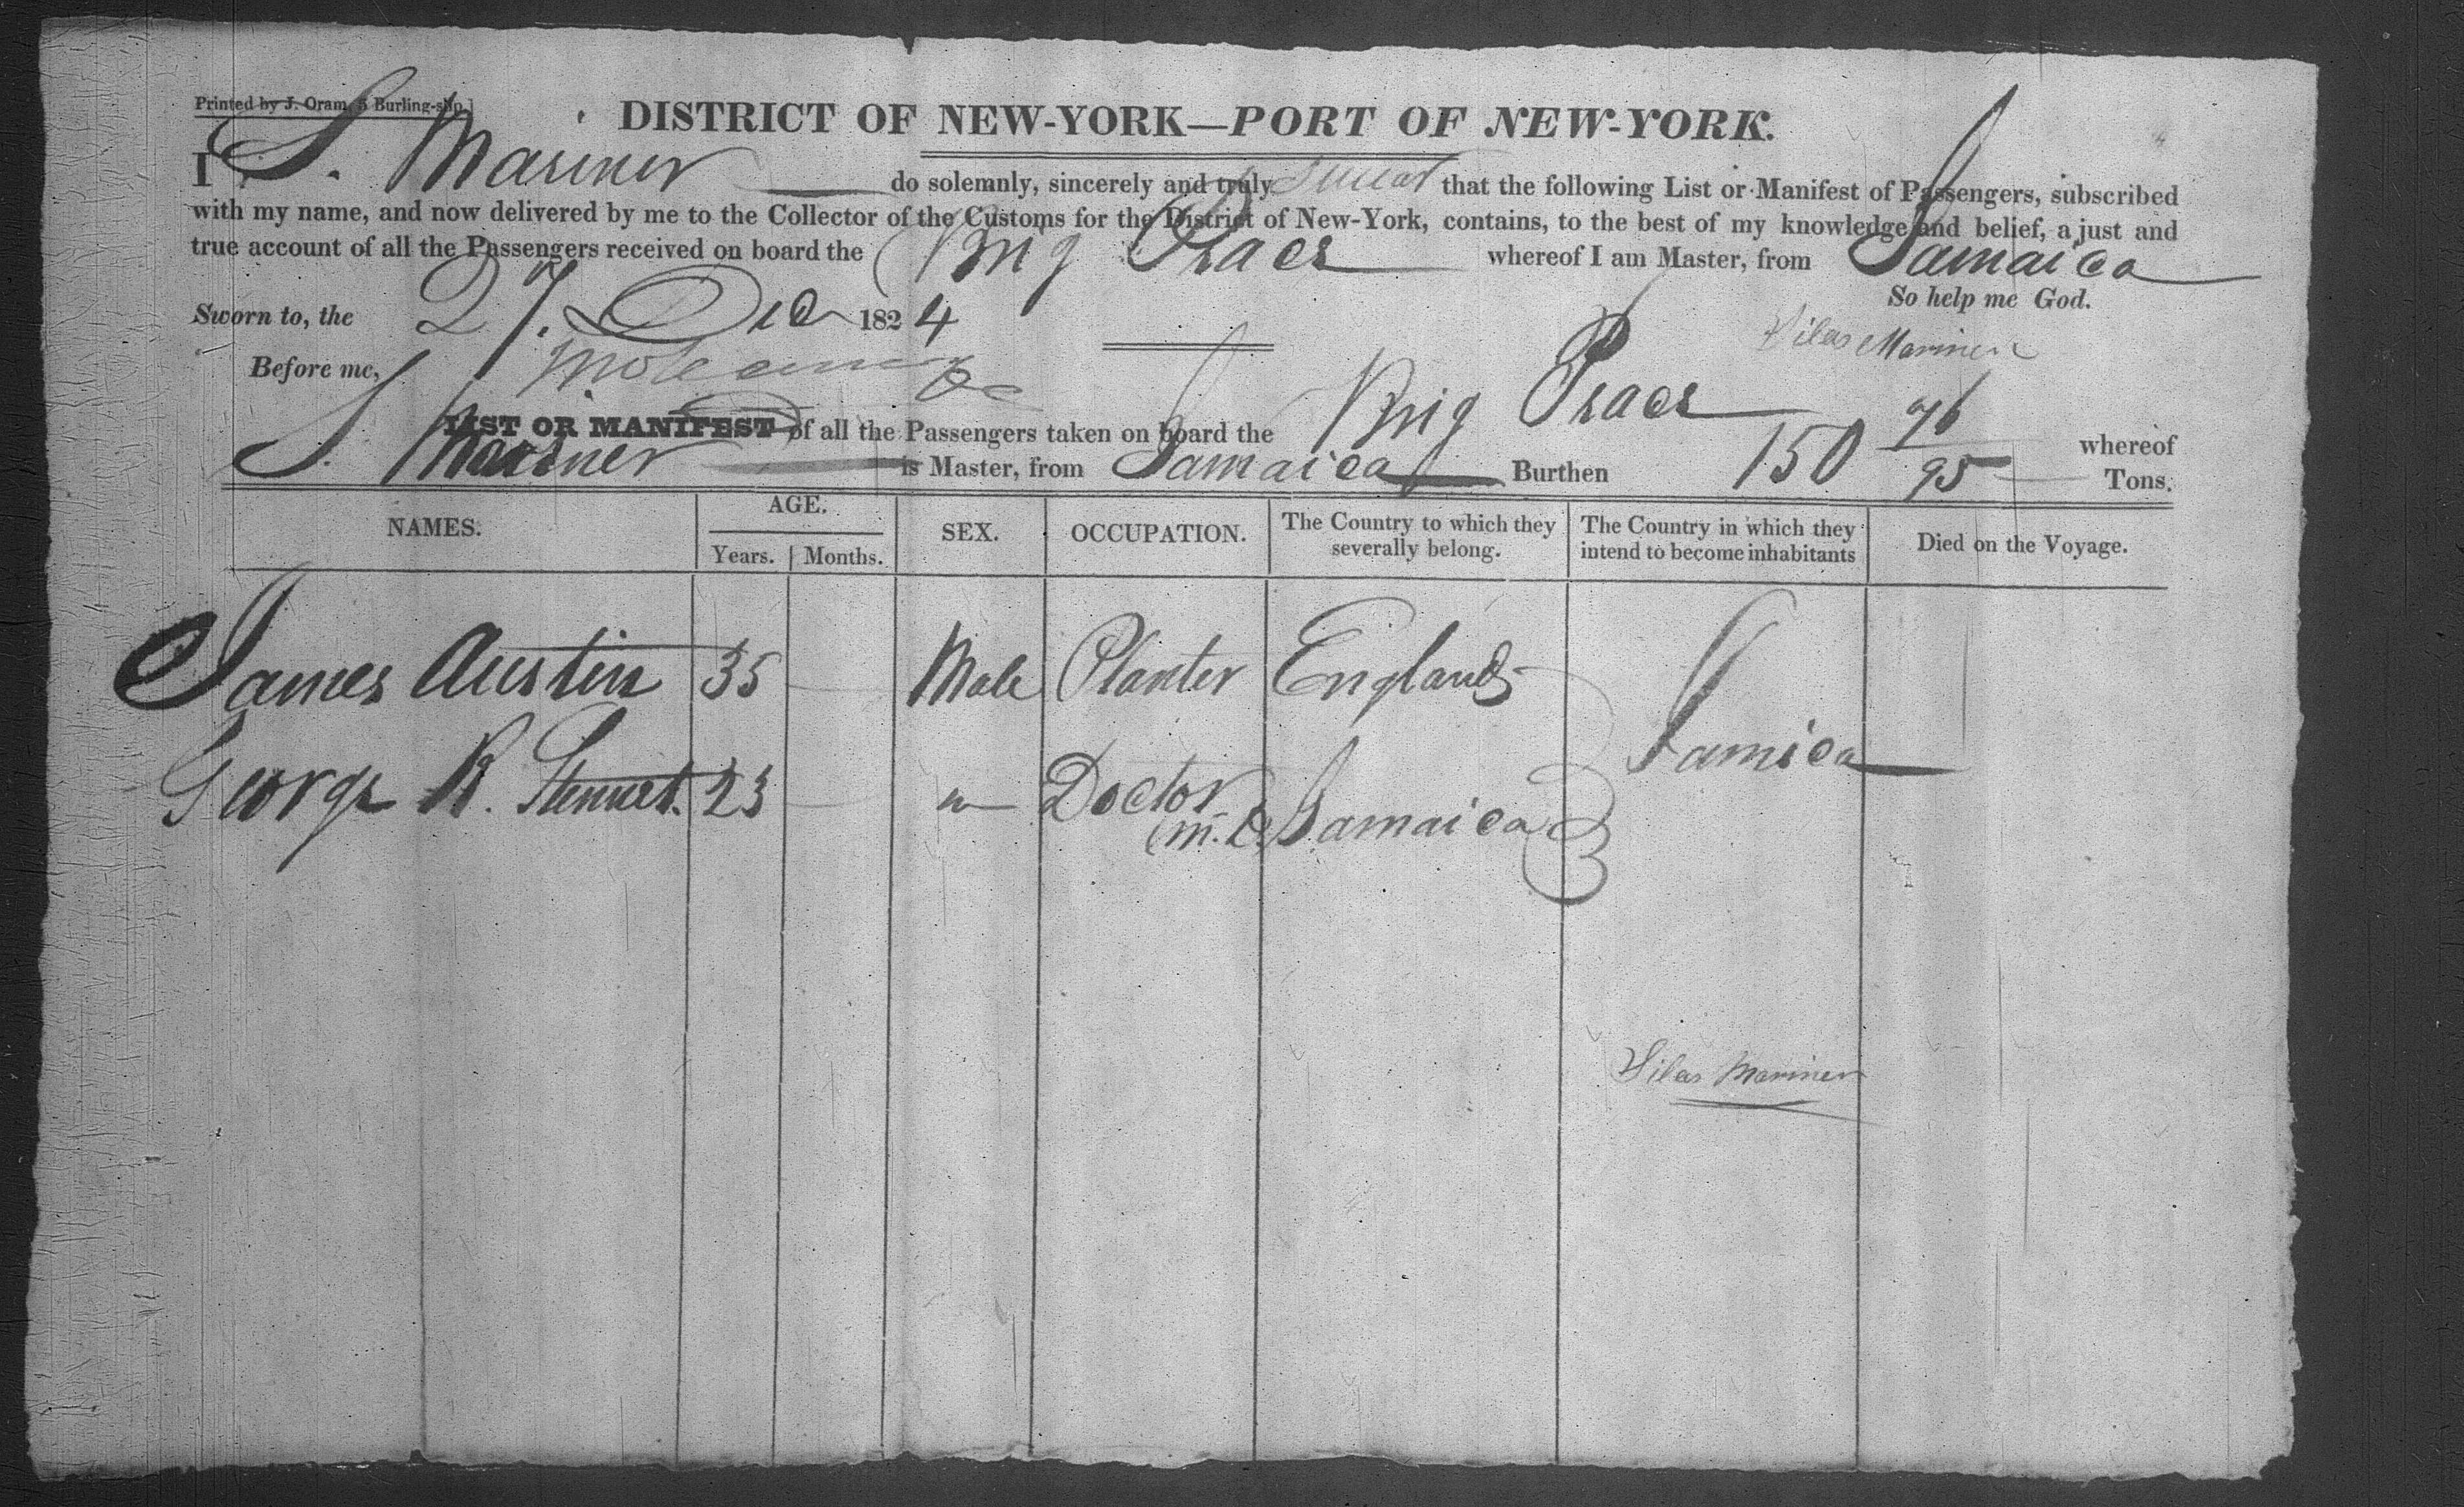 Printed by J. Oram, 5 Burling-slip.]
DISTRICT OF NEW-YORK—PORT OF NEW-YORK.
I S. Mariner do solemnly, sincerely and truly swear that the following List or Manifest of Passengers, subscribed
with my name, and now delivered by me to the Collector of the Customs for the District of New-York, contains, to the best of my knowledge and belief, a just and
true account of all the Passengers received on board the Brig whereof I am Master, from Jamaica
So help me God.
Sworn to, the 27. Dec 1824
Silas Mariner
Before me,
LIST OR MANIFEST of all the Passengers taken on board the Brig 150 76/95 whereof
S. Mariner is Master, from Jamaica Burthen Tons.
NAMES. AGE. SEX. OCCUPATION. The Country to which they severally belong. The Country in which they intend to become inhabitants Died on the Voyage.
Years. Months.
James Austin 35 Male Planter England
George R. Stennet. 23 " Doctor (M.D.) Jamaica Jamica
Silas Mariner